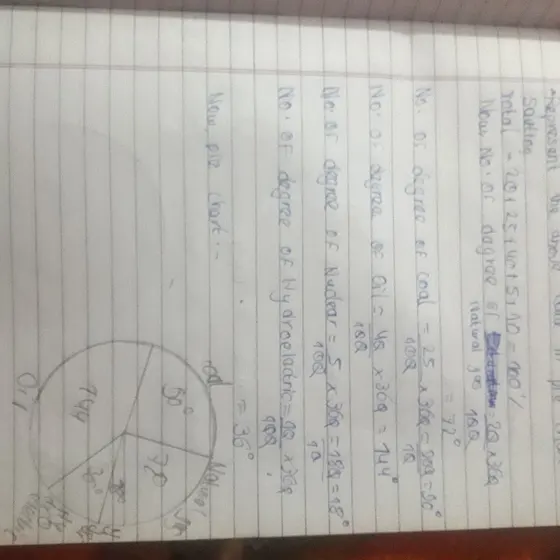 Represent the above data in pie chart
Solution
Total = 20+25+40+5+10 = 100%
Now, No. of degree of Natural gas = 20/100 x 360
= 72°
No. of degree of coal = 25/100 x 360 = 900/10 = 90°
No. of degree of oil = 40/100 x 360 = 144°
No. of degree of Nuclear = 5/100 x 360 = 180/10 = 18°
No. of degree of Hydroelectric = 10/100 x 360
= 36°
Now, pie chart...
coal
90°
Natural
72
Oil
144
36°
18°